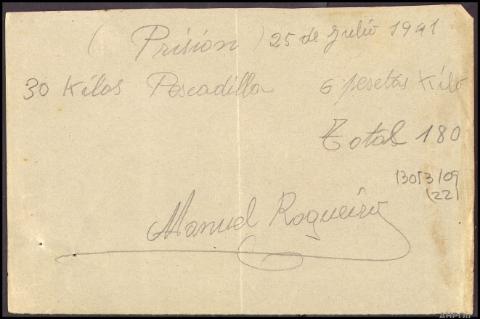 ( Prisión ) 25 de Julio 1941
30 Kilos Pescadilla 6 pesetas Kilo
Total 180
13013/09
(22)
Manuel Roqueiro